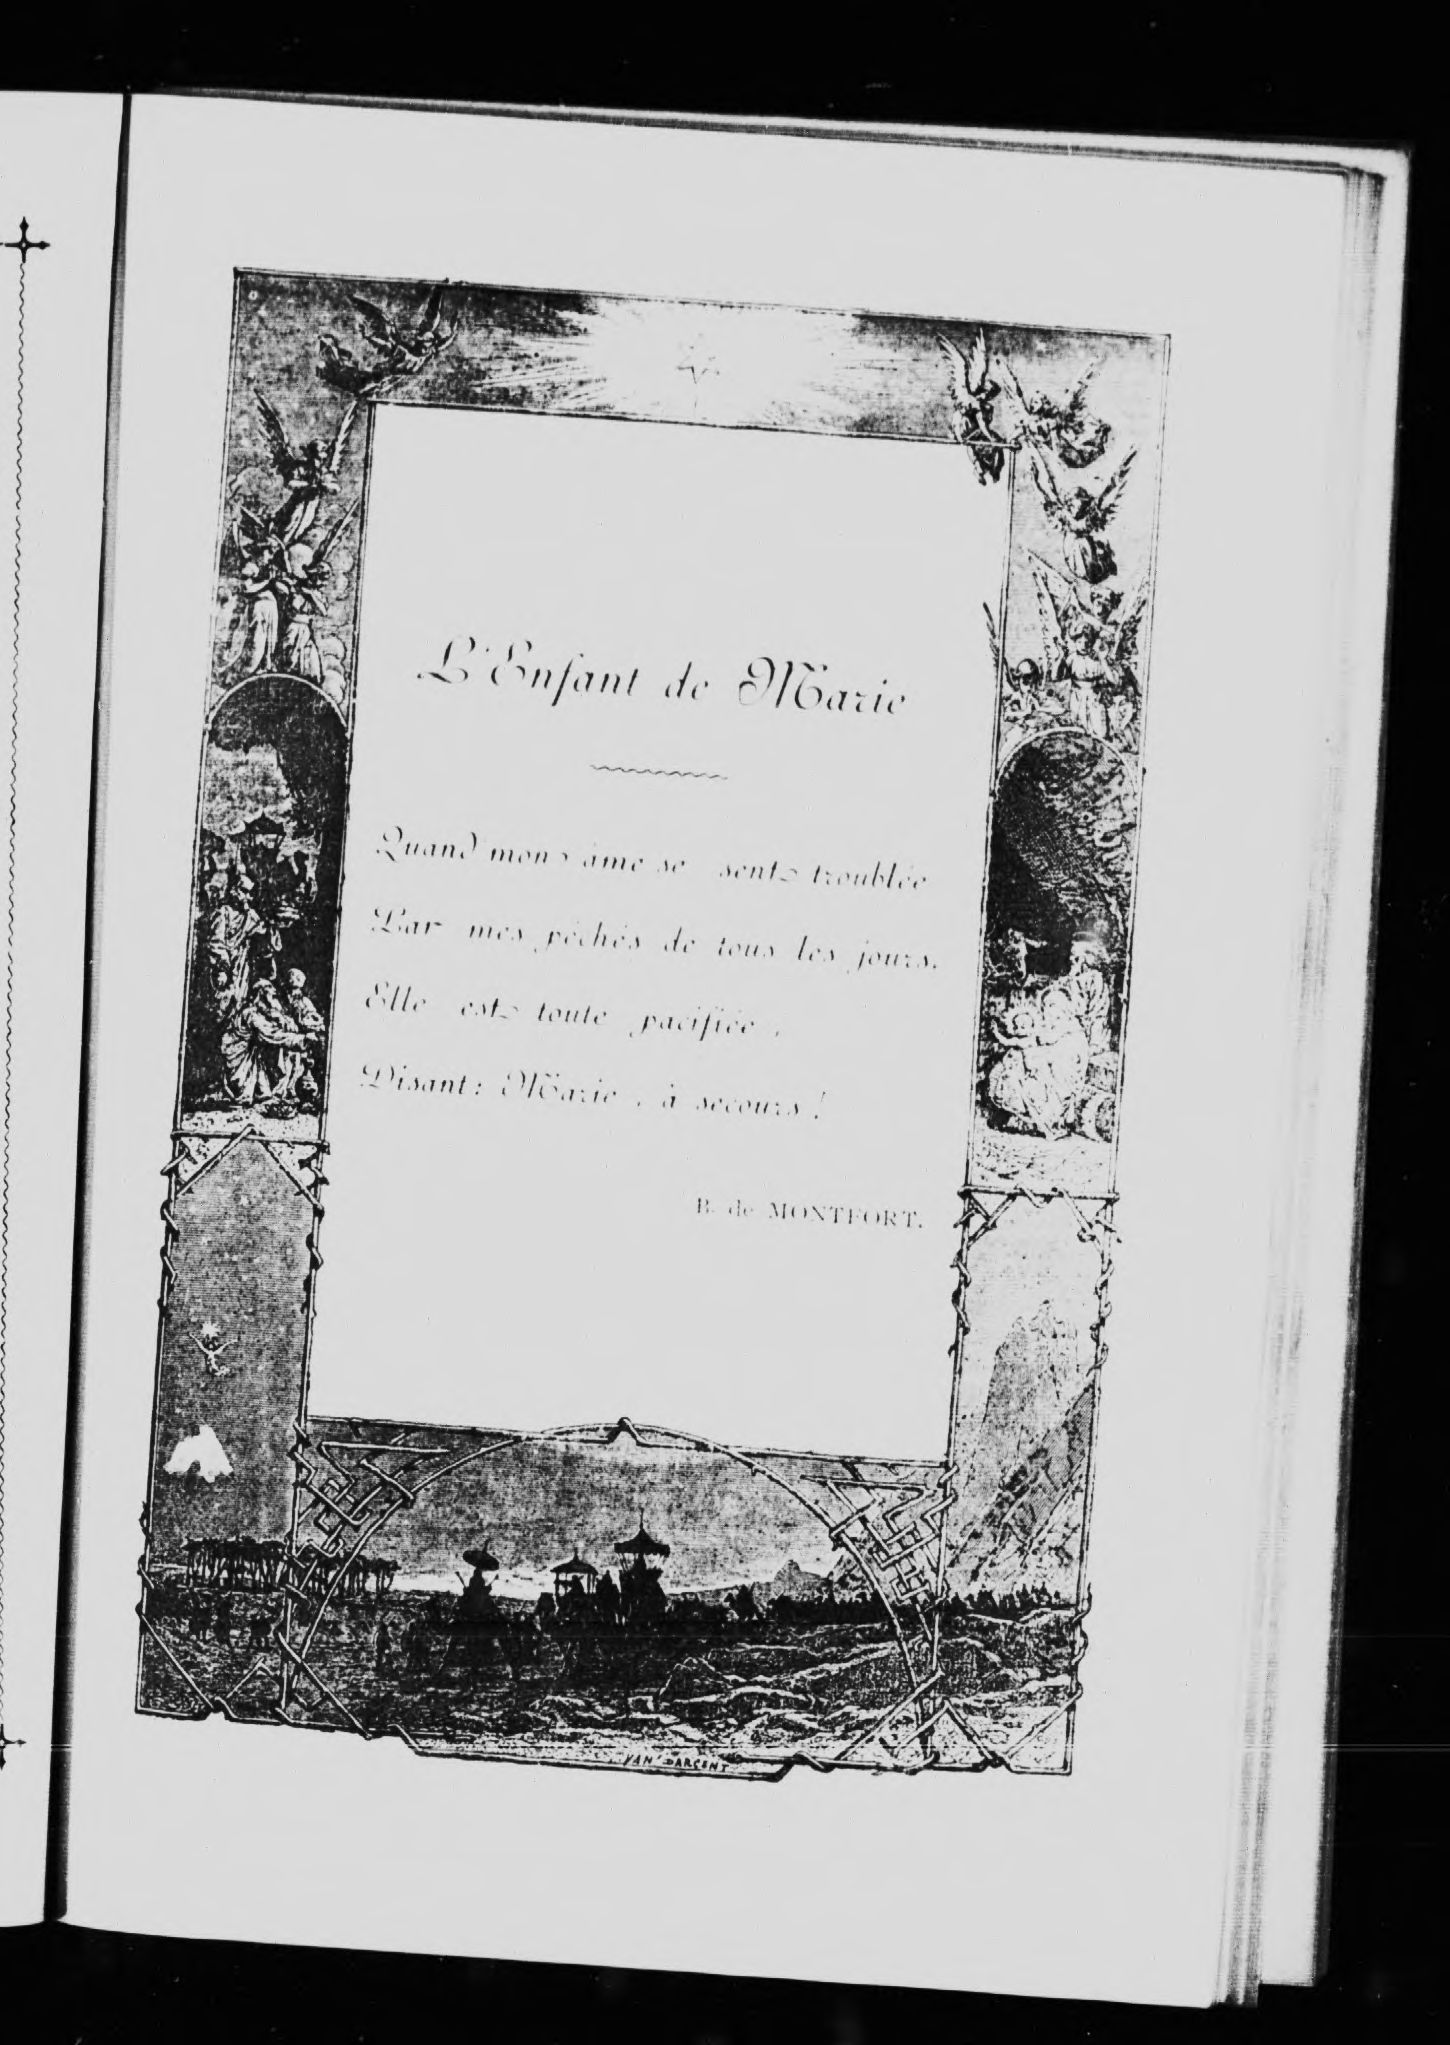 L'Enfant de Marie
Quand mon âme se sent troublée
Par mes péchés de tous les jours,
Elle est toute pacifiée,
Disant: Marie, à secours!
B. de MONTFORT.
YAN' DARGENT